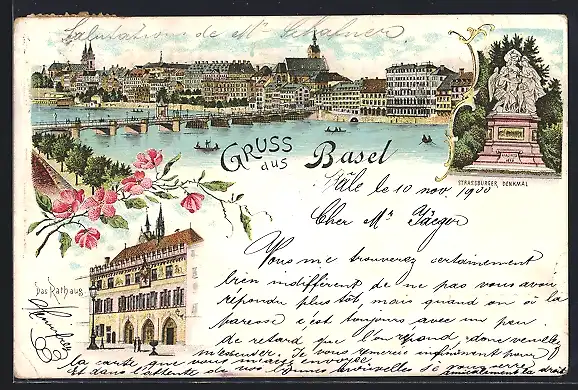 Salutations de Mr Schafner
GRUSS aus Basel
STRASSBURGER DENKMAL
Das Rathaus
Bâle le 10 nov. 1900
Cher Mr Jaeger
Vous me trouverez certainement
bien indifférent de ne pas vous avoir
répondu plus tôt, mais quand on a la
paresse c'est toujours avec un peu
de retard que l'on répond, donc veuillez
m'excuser. Je vous remercie infiniment pour
la carte que vous m'avez envoyée
et dans l'attente de vos bonnes nouvelles je vous serre
la droite